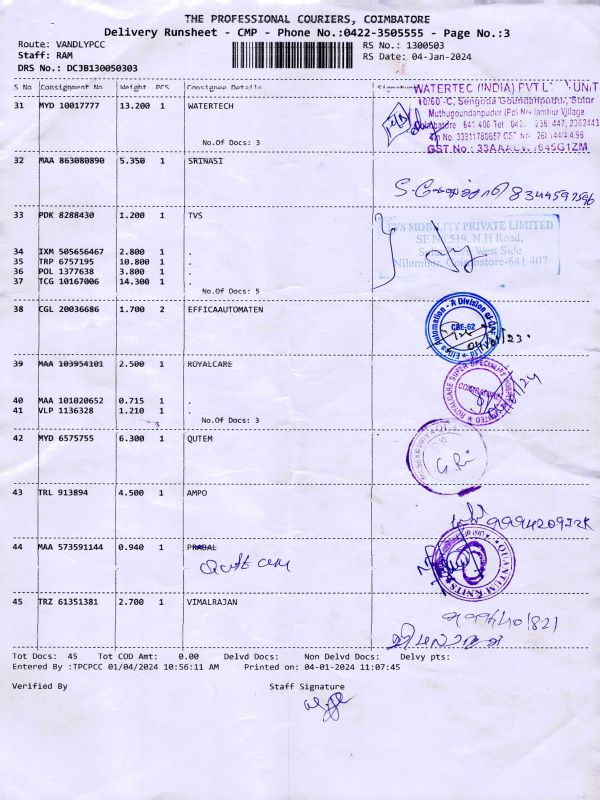 THE PROFESSIONAL COURIERS, COIMBATORE
Delivery Runsheet - CMP - Phone No.:0422-3505555 - Page No.:3
Route: VANDLYPCC RS No.: 1300503
Staff: RAM RS Date: 04-Jan-2024
DRS No.: DCJB130050303
S No Consignment No Weight PCS Consignee Details
31 MYD 10017777 13.200 1 WATERTECH
No.Of Docs: 3
WATERTEC (INDIA) PVT L UNIT
Muthugoundanpudur (Po)
32 MAA 863080890 5.350 1 SRINASI
33 PDK 8288430 1.200 1 TVS
TVS MOBILITY PRIVATE LIMITED
SF No. 519, N H Road,
West Side
Coimbatore-641 407
34 IXM 505656467 2.800 1 .
35 TRP 6757195 10.800 1 .
36 POL 1377638 3.800 1 .
37 TCG 10167006 14.300 1 .
No.Of Docs: 5
38 CGL 20036686 1.700 2 EFFICAAUTOMATEN
CBE-62
39 MAA 103954101 2.500 1 ROYALCARE
40 MAA 101020652 0.715 1 .
41 VLP 1136328 1.210 1 .
No.Of Docs: 3
42 MYD 6575755 6.300 1 QUTEM
43 TRL 913894 4.500 1 AMPO
44 MAA 573591144 0.940 1 PRABAL
QUANTUM KNITS
45 TRZ 61351381 2.700 1 VIMALRAJAN
Tot Docs: 45 Tot COD Amt: 0.00 Delvd Docs: Non Delvd Docs: Delvy pts:
Entered By :TPCPCC 01/04/2024 10:56:11 AM Printed on: 04-01-2024 11:07:45
Verified By Staff Signature